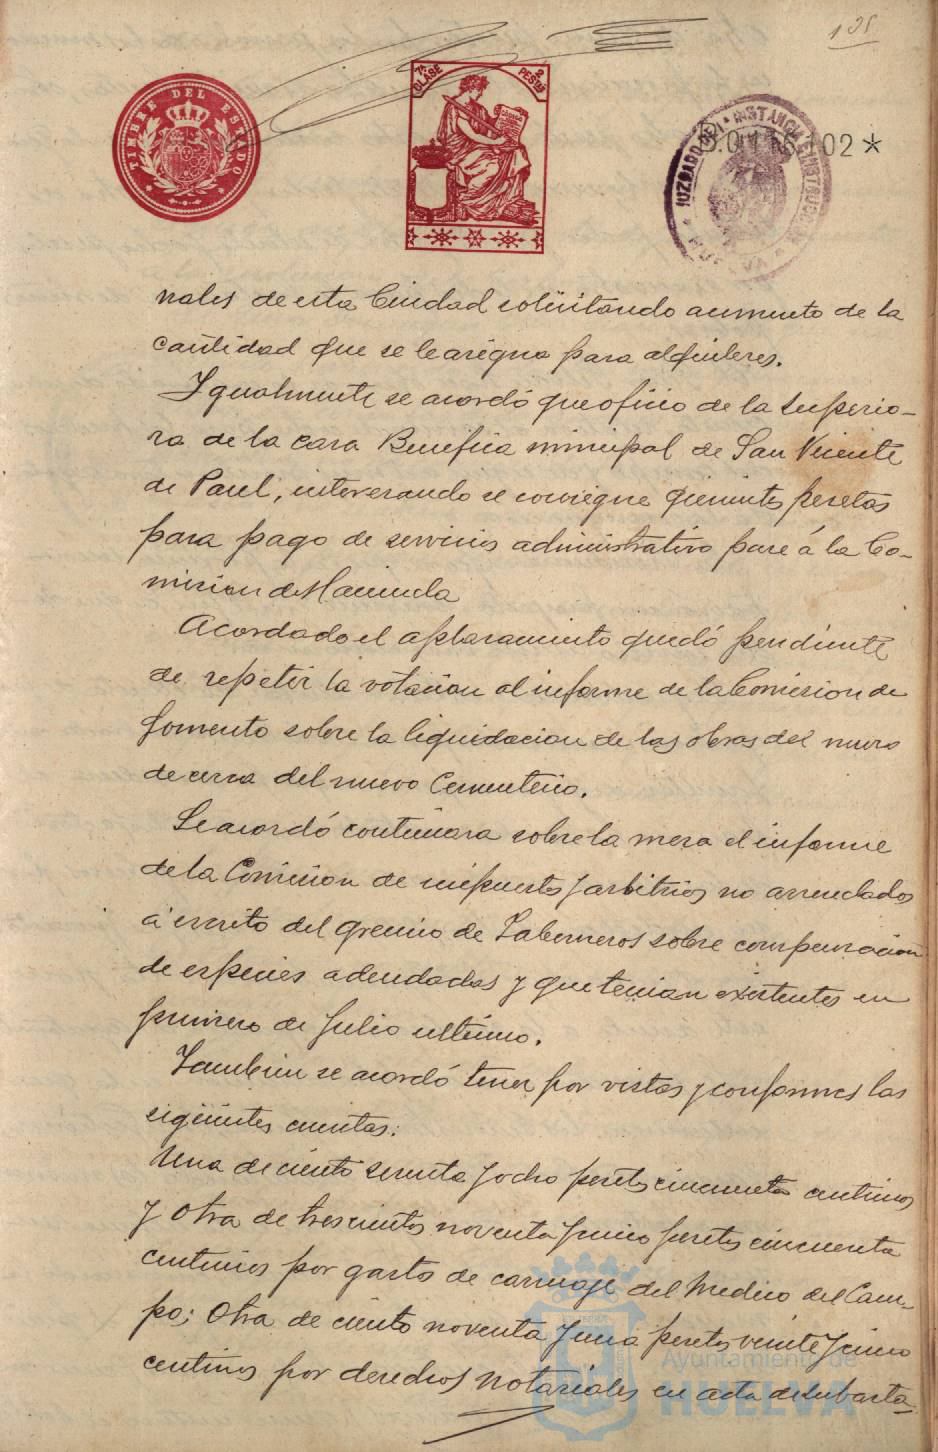 135
TIMBRE DEL ESTADO
7ª CLASE
2 PESETAS
JUZGADO DE 1ª INSTANCIA E INSTRUCCION
HUELVA
B.0.115.102*
nales de esta Ciudad solicitando aumento de la
cantidad que se le asigna para alquileres.
Igualmente se acordó que oficio de la Superio-
ra de la casa Benefica municipal de San Vicente
de Paul, interesando se consigne quinientas pesetas
para pago de servicios administrativo pase á la Co-
mision de Hacienda
Acordado el aplasamiento quedó pendiente
de repetir la votacion al informe de la Comision de
fomento sobre la liquidacion de las obras del muro
de cerca del nuevo Cementerio.
Se acordó continuara sobre la mesa el informe
de la Comision de impuestos y arbitrios no arrendados
á escrito del gremio de Taberneros sobre compensacion
de especies adeudadas y que tenian existentes en
primero de Julio ultimo.
Tambien se acordó tener por vistas y conformes las
siguientes cuentas:
Una de ciento setenta y ocho pesetas cincuenta centimos
y otra de trescientos noventa y cinco pesetas cincuenta
centimos por gasto de carruaje del Medico del Cam-
po; otra de ciento noventa y una pesetas veinte y cinco
centimos por derechos notariales en acta de subasta
Ayuntamiento de
HUELVA